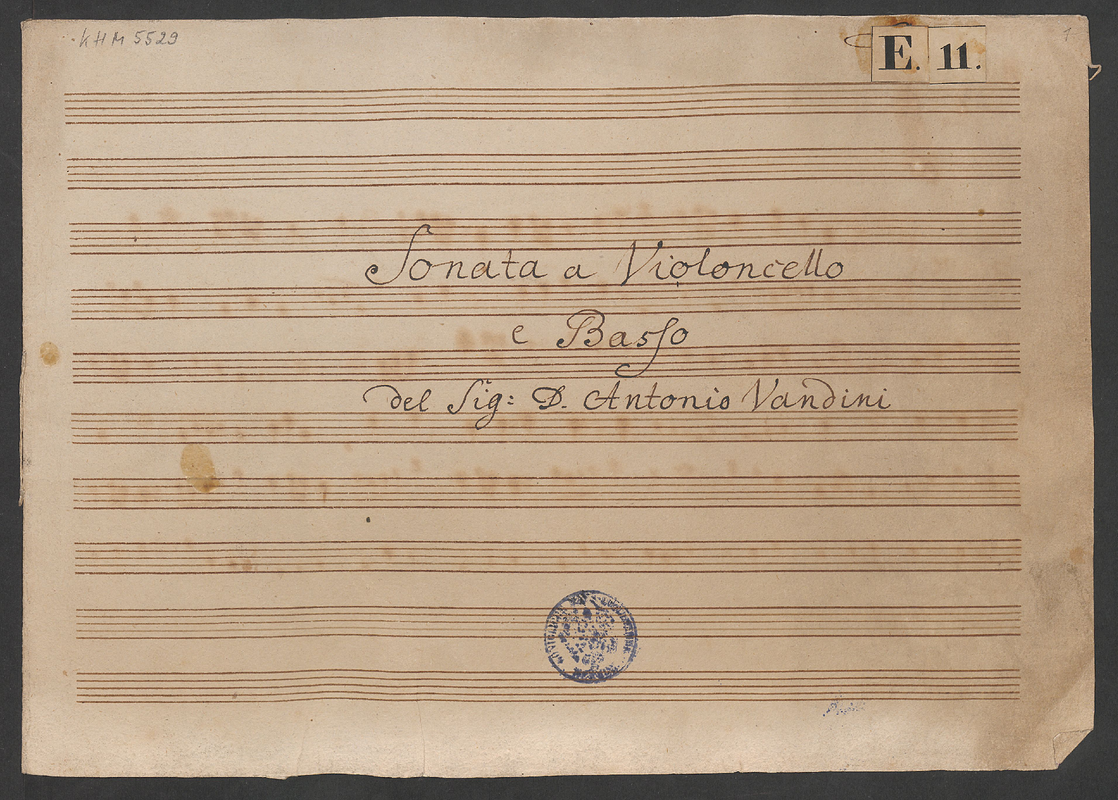 KHM 5529
E. 11.
1.
Sonata a Violoncello
e Basso
del Sig: D. Antonio Vandini